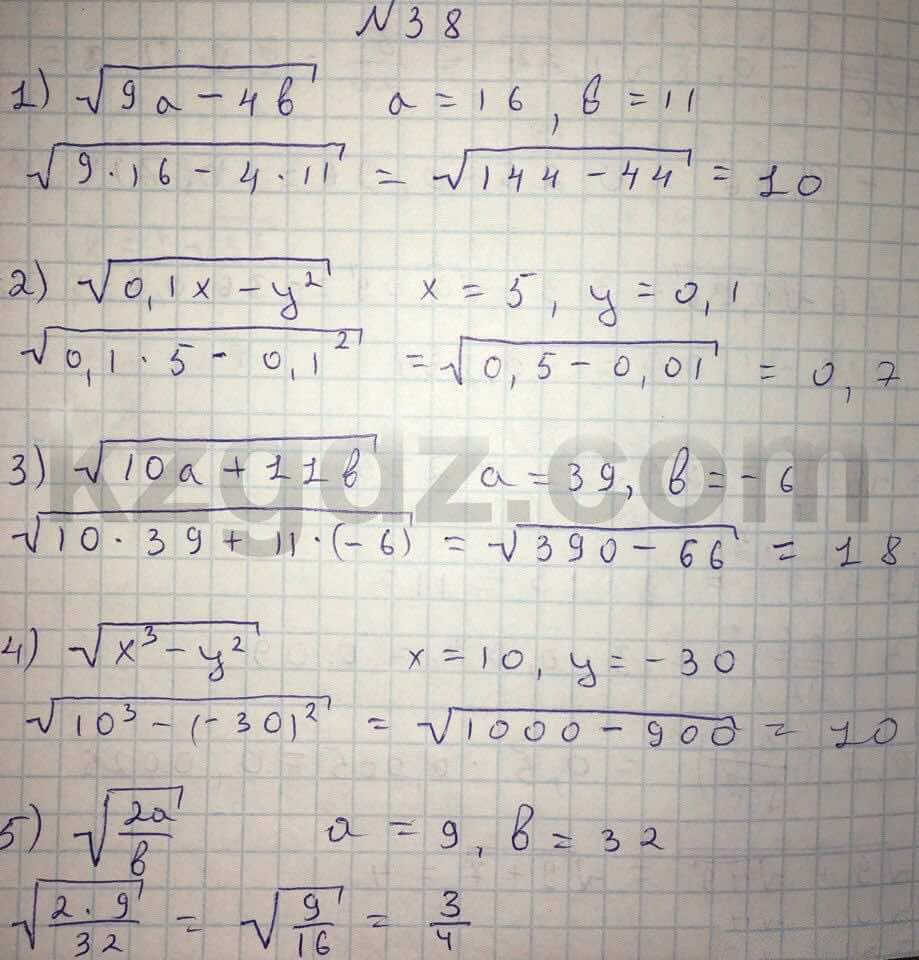 №38
1) √(9a − 4b)   a = 16, b = 11
√(9·16 − 4·11) = √(144 − 44) = 10
2) √(0,1x − y²)   x = 5, y = 0,1
√(0,1·5 − 0,1²) = √(0,5 − 0,01) = 0,7
kzgdz.com
3) √(10a + 11b)   a = 39, b = −6
√(10·39 + 11·(−6)) = √(390 − 66) = 18
4) √(x³ − y²)   x = 10, y = −30
√(10³ − (−30)²) = √(1000 − 900) = 10
5) √(2a/b)   a = 9, b = 32
√(2·9/32) = √(9/16) = 3/4